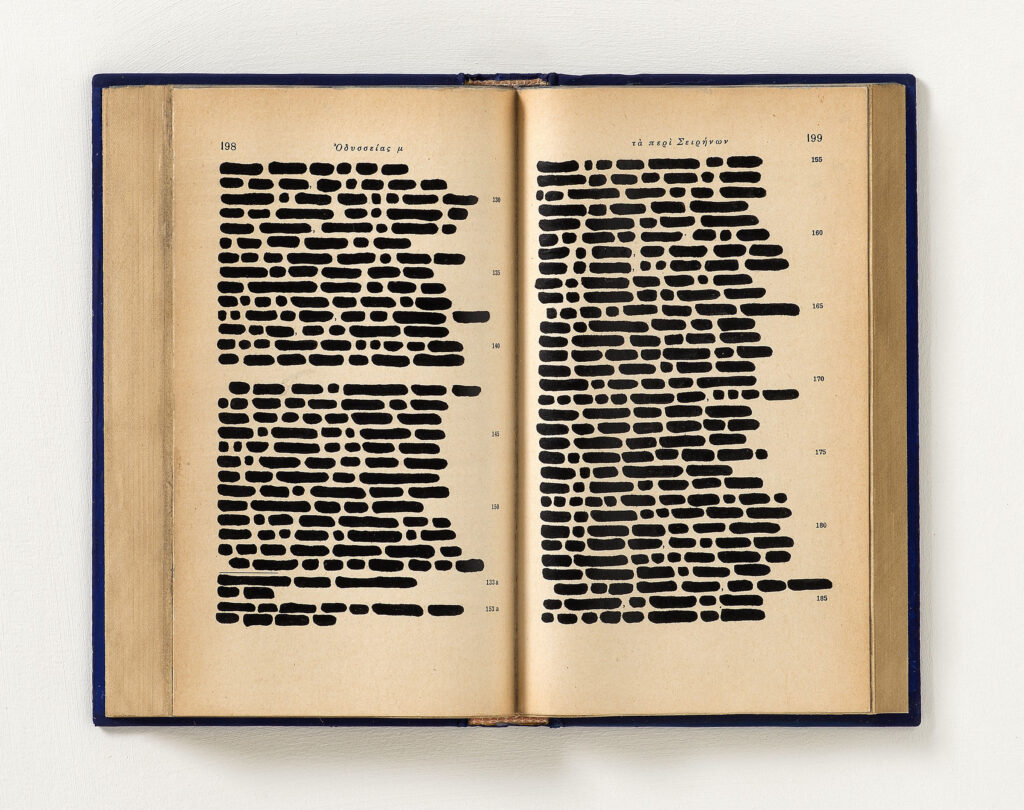 198
Ὀδυσσείας μ
130
135
140
145
150
133a
153a
τὰ περὶ Σειρήνων
199
155
160
165
170
175
180
185